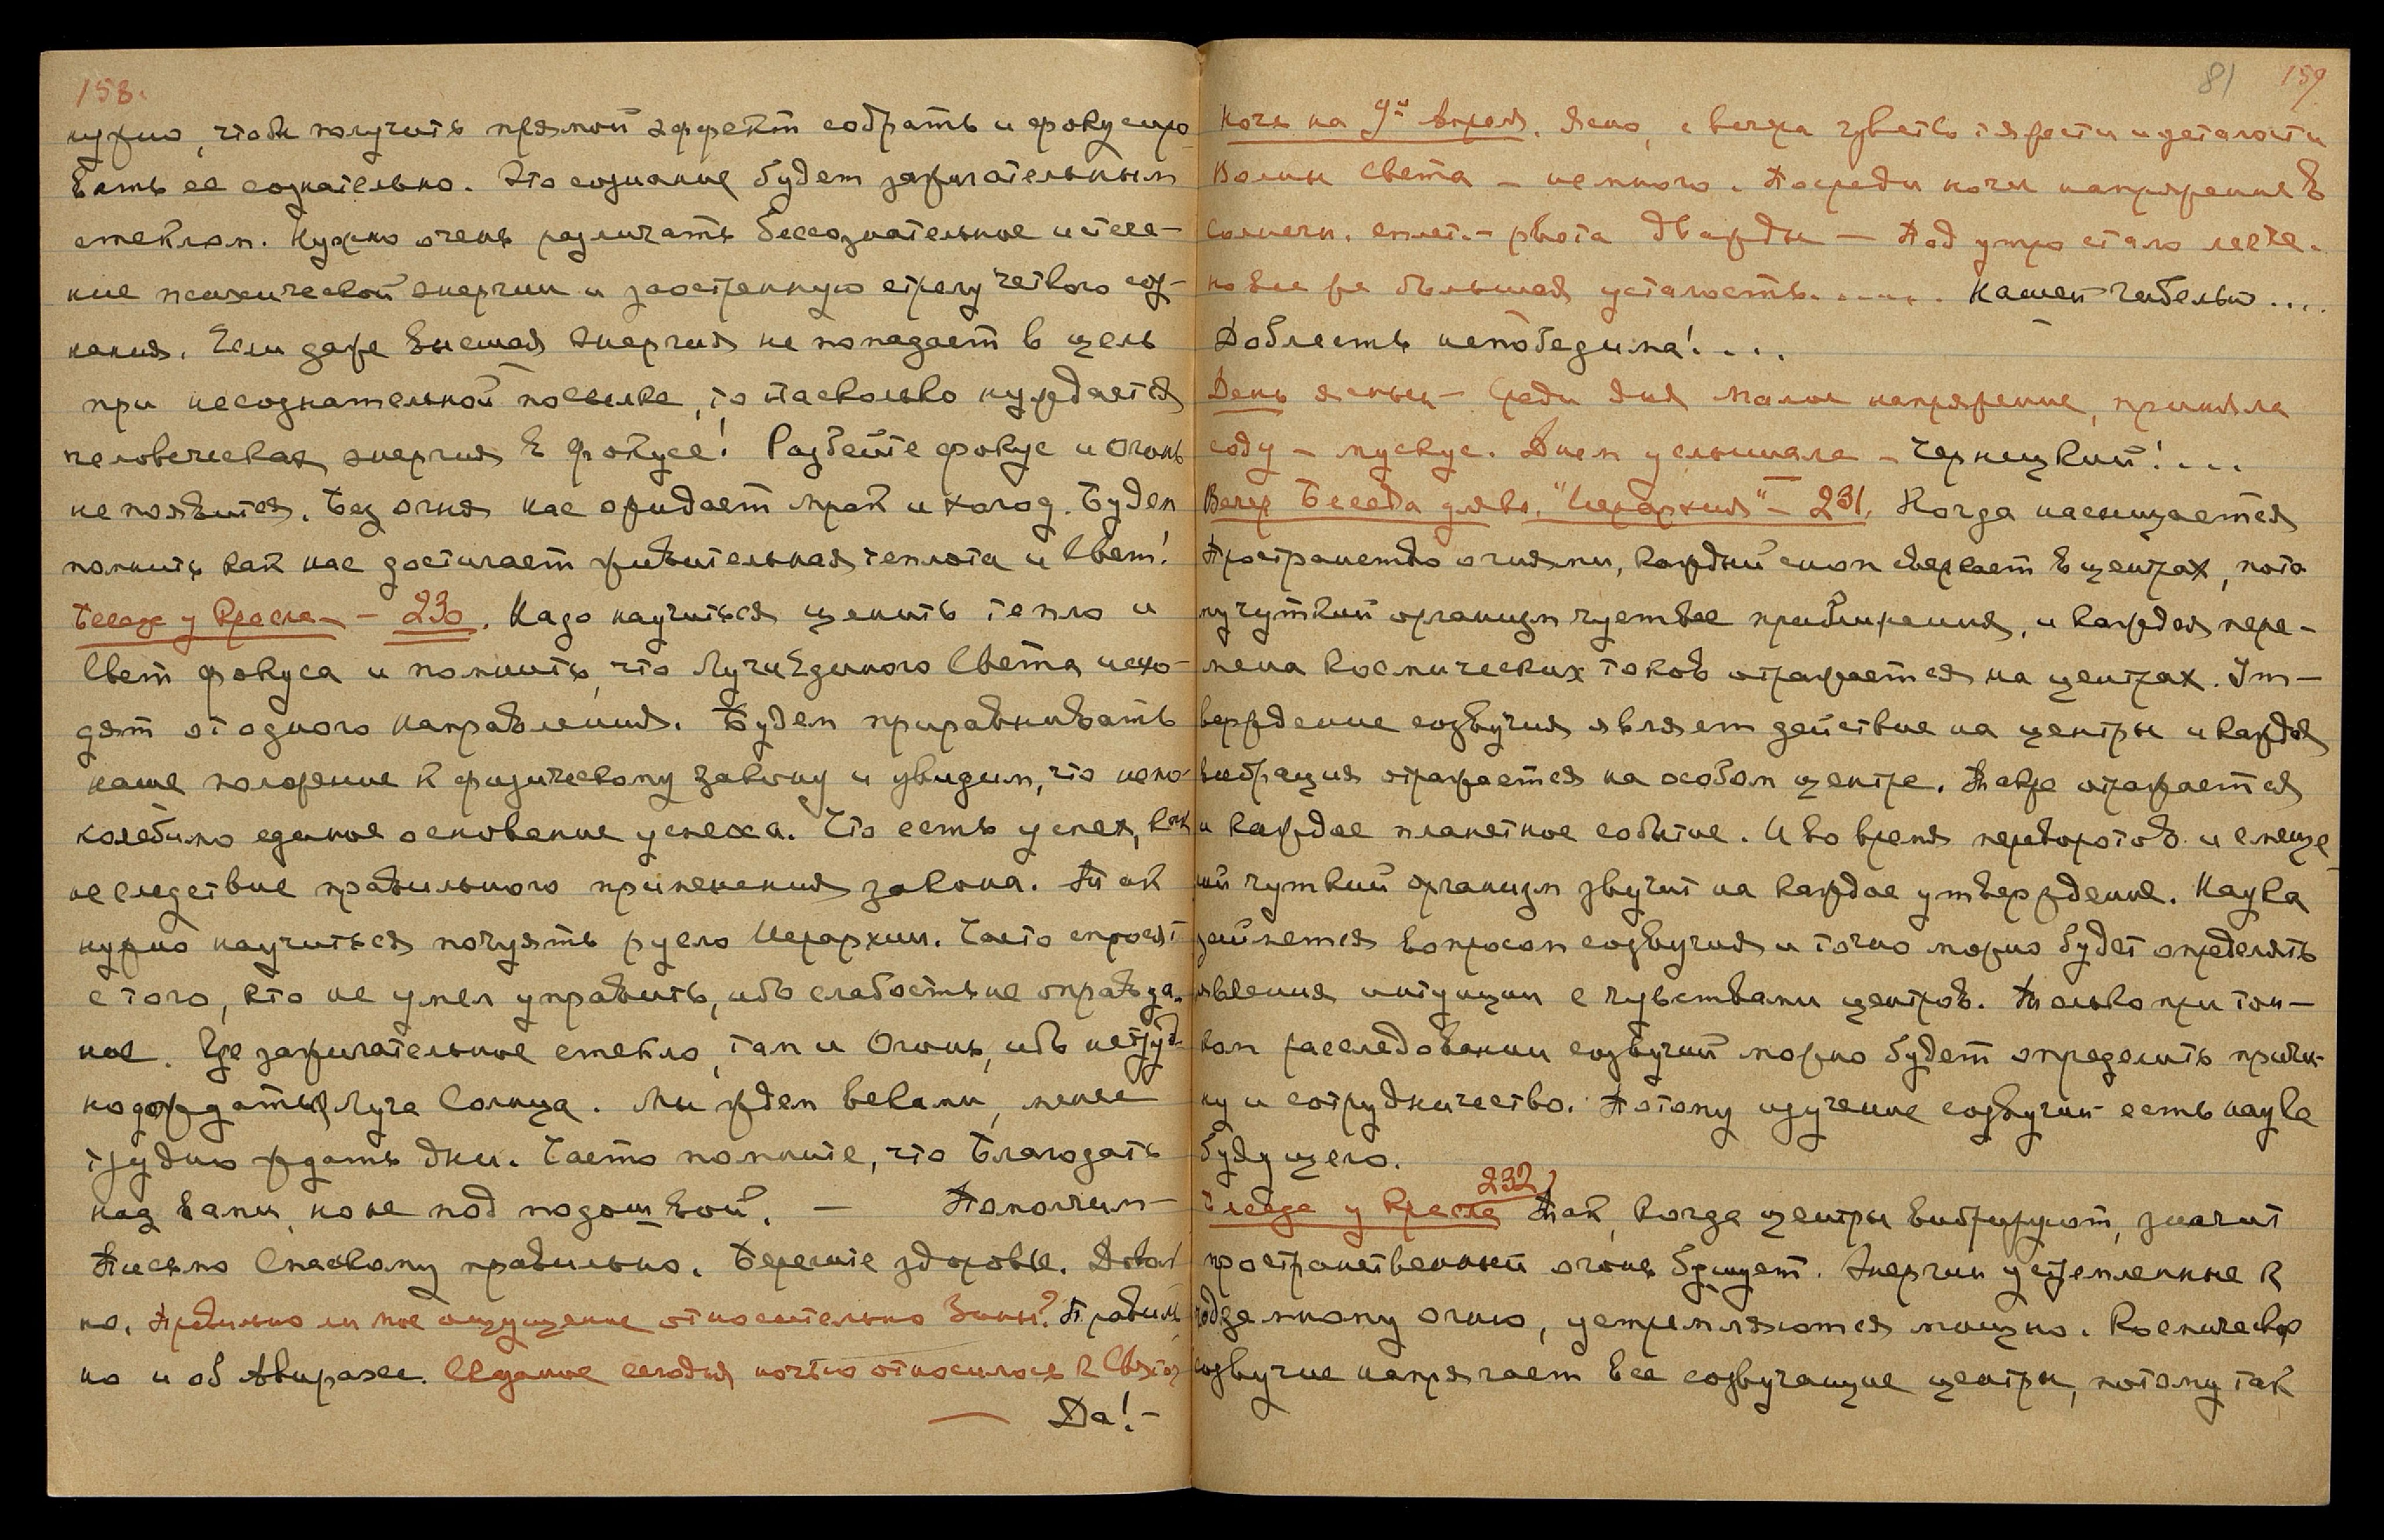 158.
нужно, чтобы получить прямой эффект собрать и фокусиро
вать ее сознательно. Это сознание будет зажигательным
стеклом. Нужно очень различать бессознательное истече-
ние психической энергии и заостренную стрелу четкого соз-
нания. Если даже высшая энергия не попадает в цель
при несознательной посылке, то насколько нуждается
человеческая энергия в фокусе! Разбейте фокус и огонь
не появится. Без огня нас ожидает мрак и холод. Будем
помнить как нас достигает живительная теплота и Свет!
Беседа у Кресла — 230. Надо научиться ценить тепло и
Свет фокуса и помнить, что Лучи Единого Света исхо-
дят от одного направления. Будем приравнивать
наше положение к физическому закону и увидим, что непо-
колебимо единое основание успеха. Что есть успех, как
не следствие правильного применения закона. Так
нужно научиться почуять русло Иерархии. Часто спросят
с того, кто не умел управить, ибо слабость не оправда-
ние. Где зажигательное стекло, там и Огонь, ибо нетруд-
но дождаться Луча Солнца. Мы ждем веками, менее
трудно ждать дни. Часто помните, что Благодать
над вами, но не под подошвой. — Помолчим —
Письмо Спаскому правильно. Берегите здоровье. Доволь
но. Правильно ли мое ощущение относительно Зины? Правиль
но и об Авирахе. Сведание сегодня ночью относилось к
— Да! —
81 159
Ночь на 9й Апреля. Ясно, с вечера чувство тяжести и усталости
Волны Света — немного. Посреди ночи напряжение в
солнечн. сплет. — рвота дважды — Под утро стало легче.
но все же большая усталость..... Камен гибельно...
Доблесть непобедима!....
День ясный — Среди дня малое напряжение, приняла
соду — мускус. Днем услышала — Чернецкий!...
Вечер Беседа для кн. "Иерархия" — 231. Когда насыщается
Пространство огнями, каждый сион сверкает в центрах, пото
му чуткий организм чует все приближения, и каждая пере-
мена космических токов отражается на центрах. Ут-
верждение созвучия являет действие на центры и каждая
вибрация отражается на особом центре. Также отражается
и каждое планетное событие. И во время переворотов и смеще
ний чуткий организм звучит на каждое утверждение. Наука
займется вопросом созвучия и точно можно будет определять
явления интуиции с чувствами центров. Только при тон-
ком расследовании созвучий можно будет определить причи-
ну и сотрудничество. Потому изучение созвучий есть наука
будущего.
Беседа у Кресла 232) Так, когда центры вибрируют, значит
пространственный огонь бушует. Энергии устремленные к
подземному огню, устремляются мощно. Космическое
созвучие напрягает все созвучащие центры, потому так